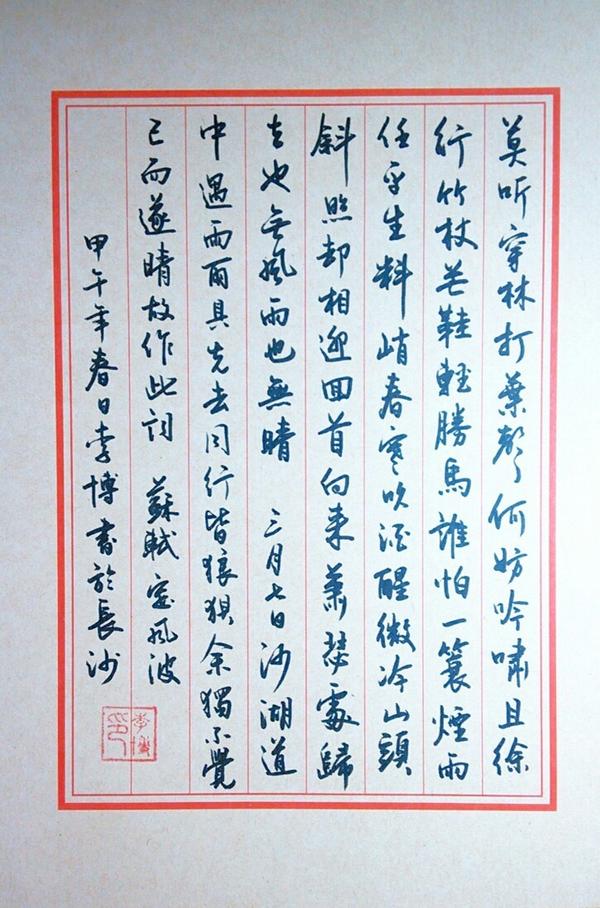 莫听穿林打葉聲何妨吟嘯且徐
行竹杖芒鞋輕勝馬誰怕一蓑煙雨
任平生料峭春寒吹酒醒微冷山頭
斜照却相迎回首向来萧瑟處歸
去也无風雨也無晴 三月七日沙湖道
中遇雨雨具先去同行皆狼狽余獨不覺
已而遂晴故作此詞 蘇軾定風波
甲午年春日李博書於長沙
李博印